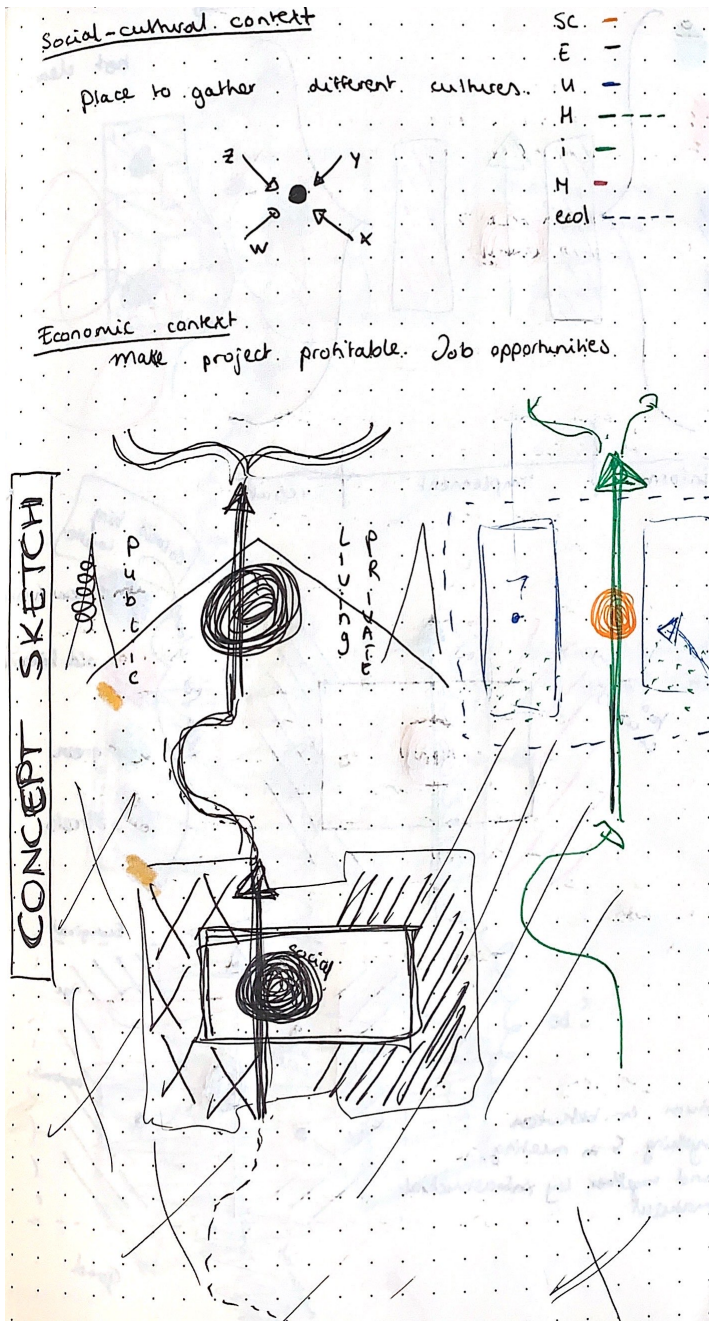 Social-cultural context
Place to gather different cultures.
Z
Y
W
X
SC.
E
U
H
i
M
ecol
Economic context
make project profitable. Job opportunities.
CONCEPT SKETCH
Public
Living
PRIVATE
?
social